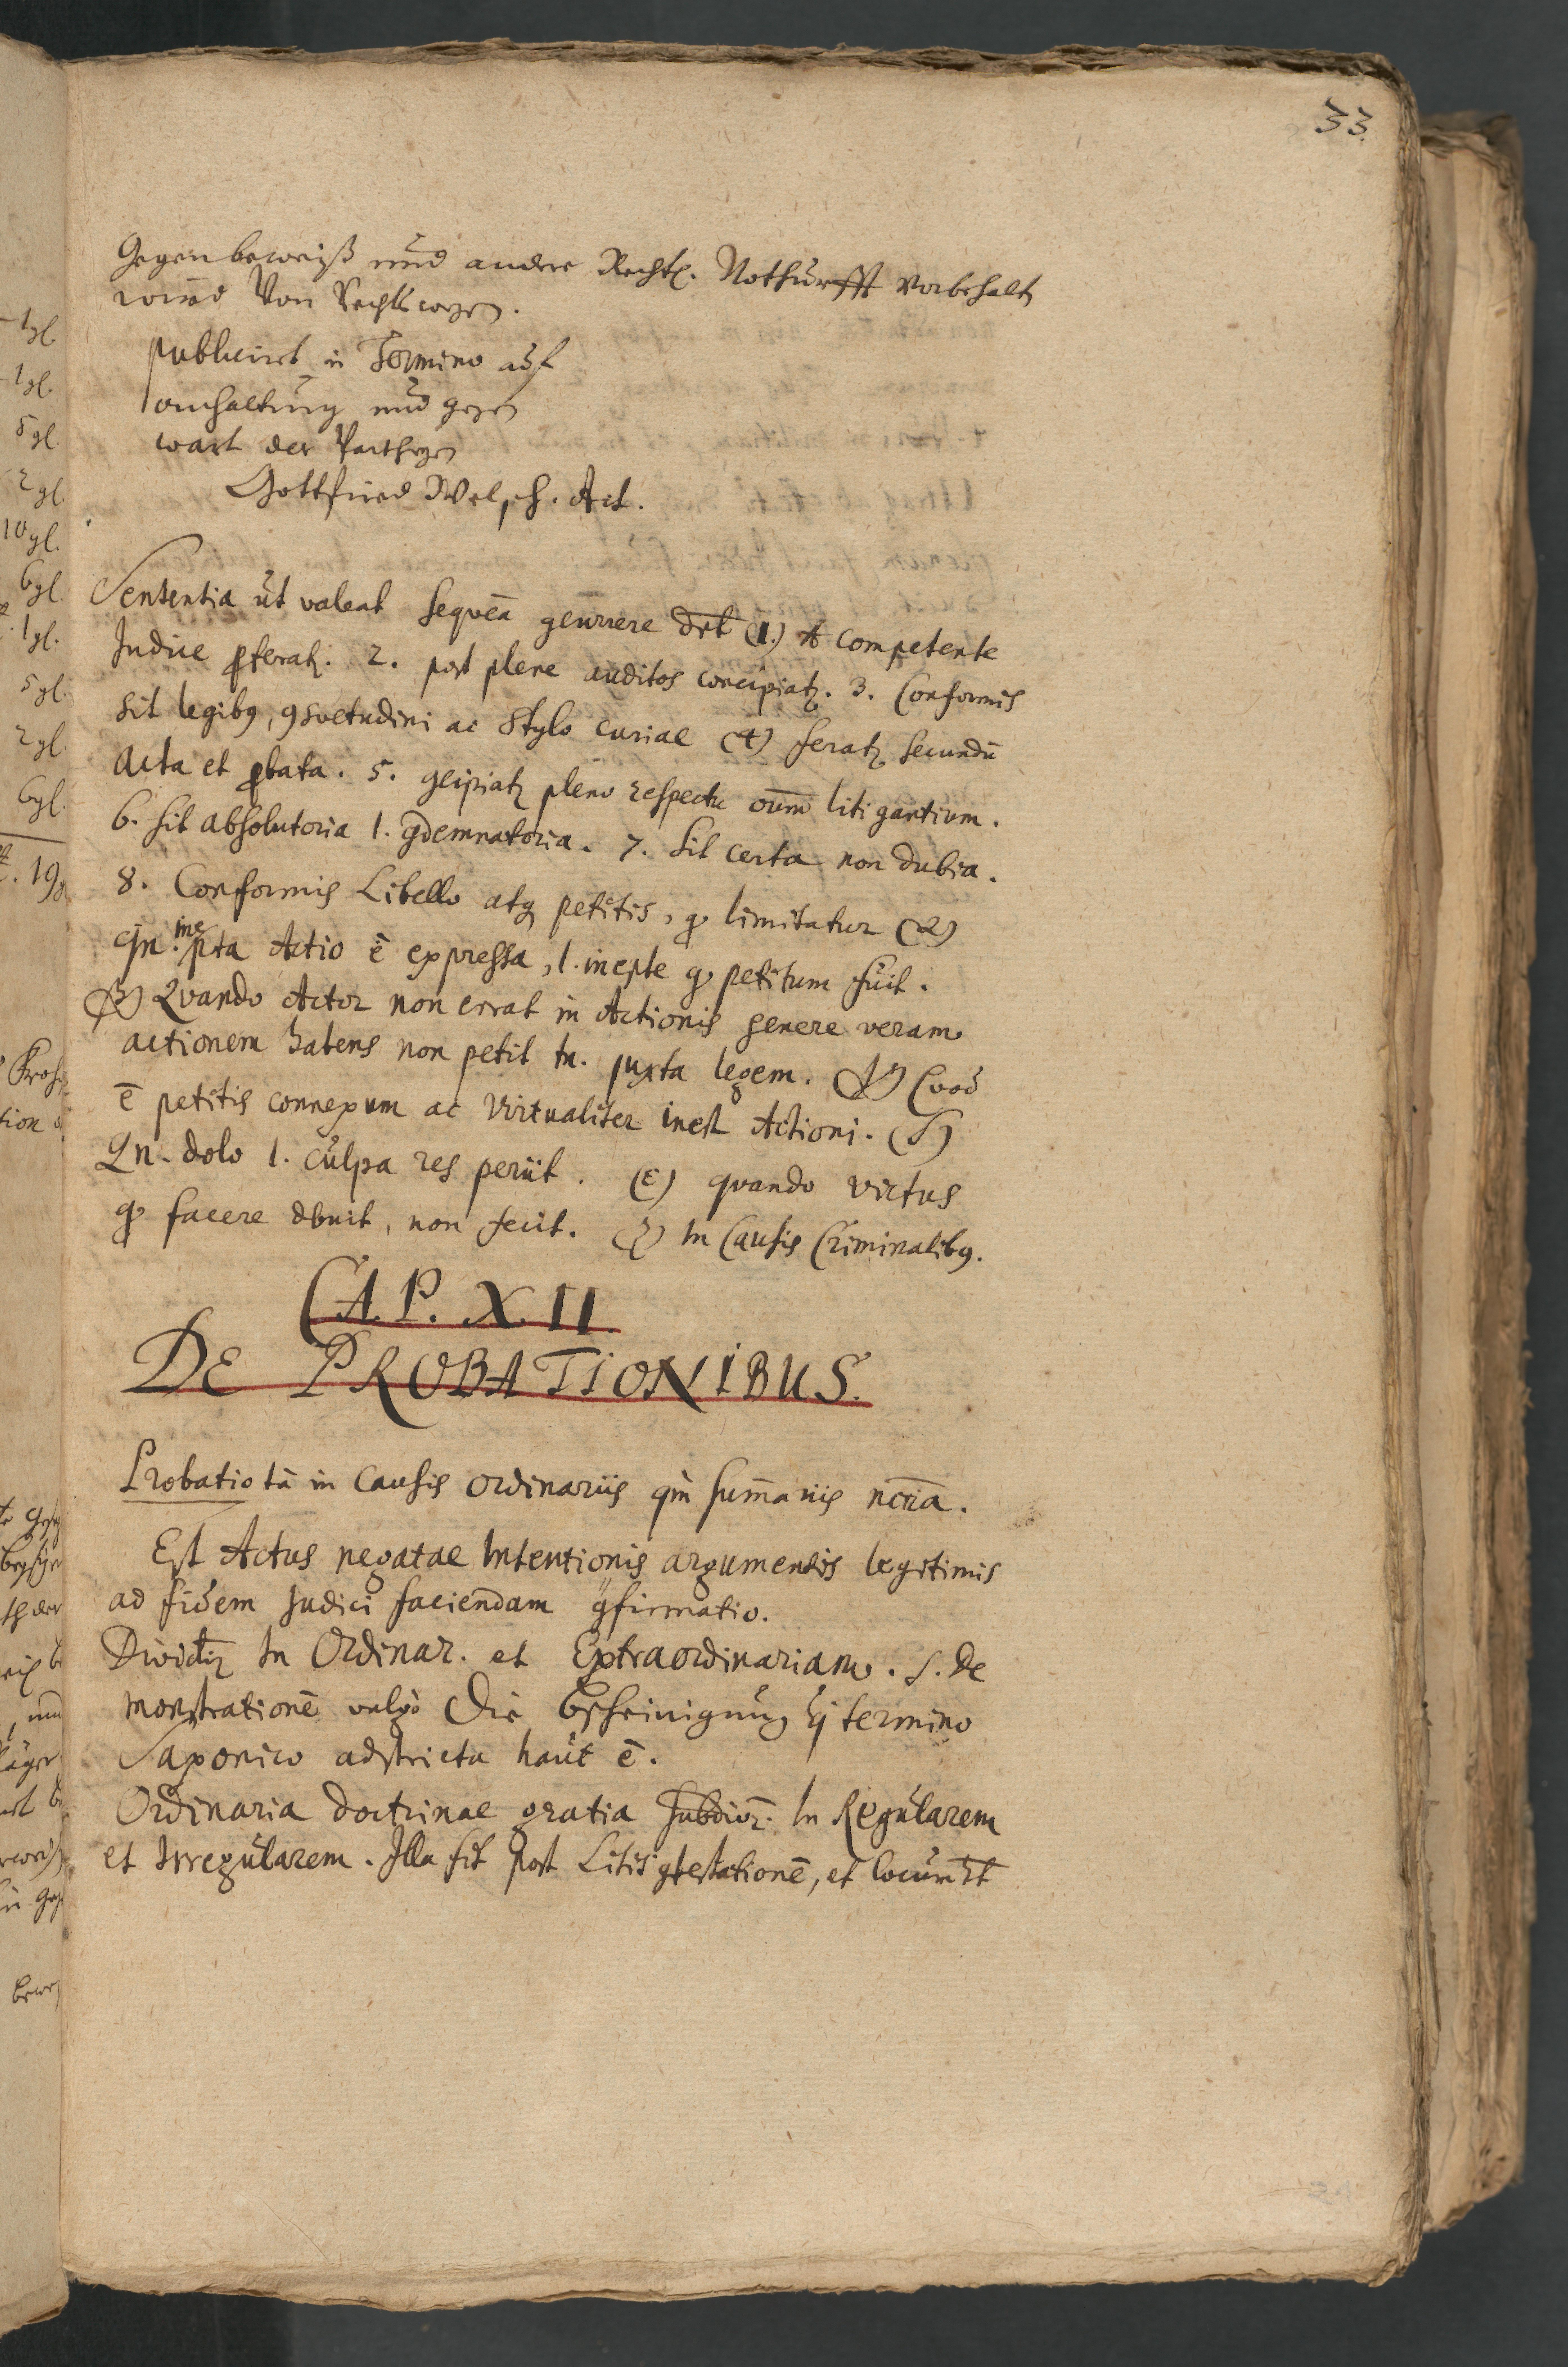 33.
Gegenbeweiß und andere Rechtl. Nothurfft vorbehalt
wird Von Rechtswegen.
publicirt in Termino auf
anhaltung und gegen
wart der Partheyen
Gottfried Welsch. Act.
Sententia ut valeat sequēa 9currere dēt (1.) A competente
Judice ꝓferatꝫ. 2. post plene auditos concipiatꝫ. 3. Conformis
sit legibꝰ, 9suetudini ac Stylo curiae (4) feratꝫ secundū
acta et ꝓbata. 5. 9cipiatꝫ pleno respectu oīum litigantium.
6. sit absolutoria l. 9demnatoria. 7. Sit certa non dubia.
8. Conformis Libello atqꝫ petitis, qᵒ limitatur (α)
qn. inepta Actio ē expressa, l. inepte qᵒ petitum fuit.
(β) Quando Actor non errat in Actionis genere veram
actionem habens non petit tn. juxta legem. (γ) Quod
ē petitis connexum ac virtualiter inest Actioni. (δ)
Qn. dolo l. culpa res periit. (ε) quando victus
qᵒ facere dbuit, non fecit. (ζ) In Causis Criminalibꝰ.
CAP. XII.
DE PROBATIONIBUS.
Probatio tā in Causis ordinariis qm̄ sum̄ariis ncr̄ia.
Est Actus negatae Intentionis argumentis legitimis
ad fidem Judici faciendam 9firmatio.
Dividitꝫ In Ordinar. et Extraordinariam. s. De
monstrationē vulgo Die Bescheinigung q̄ termino
Saxonico adstricta haut ē.
Ordinaria doctrinae gratia subdivꝫ. In Regularem
et Irregularem. Illa fit post Litis 9testationē, et locum